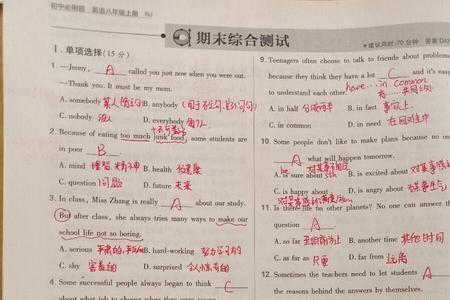 初中必刷题 英语八年级上册 RJ
期末综合测试
建议用时:70分钟 答案D4
I. 单项选择(15分)
1. —Jenny, A called you just now when you were out.
—Thank you. It must be my mom.
A. somebody 某人 B. anybody
C. nobody 没人 D. everybody
2. Because of eating too much junk food, some students are
不可数
in poor B .
A. mind B. health 健康
C. question 问题 D. future 未来
3. In class, Miss Zhang is really A about our study.
But after class, she always tries many ways to make our
school life not so boring.
A. serious B. hard-working
C. shy 害羞的 D. surprised
4. Some successful people always began to think C
about what job to choose when they were
9. Teenagers often choose to talk to friends about problems
because they think they have a lot C and it's easy
to understand each other. have...in common
A. in half B. in fact 事实上
C. in common D. in need
10. Some people don't like to make plans because no
A what will happen tomorrow.
A. is sure about B. is excited about
C. is happy about D. is angry about
11. Is there life on other planets? No one can answer th
question A .
A. so far B. another time 其他时间
C. as far as D. far from 远离
12. Sometimes the teachers need to let students A
the reasons behind the answers by themselves.